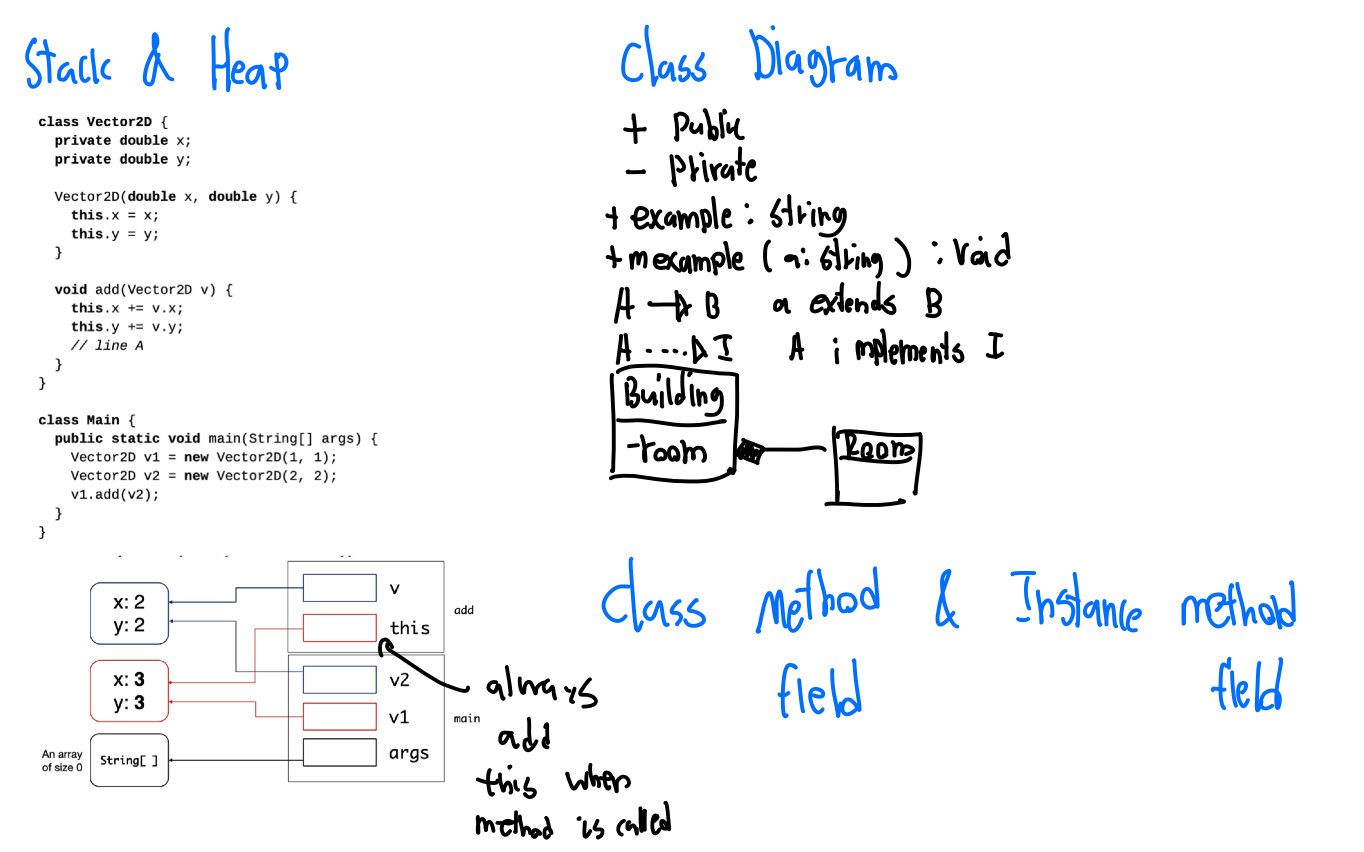 Stack & Heap
class Vector2D {
private double x;
private double y;
Vector2D(double x, double y) {
this.x = x;
this.y = y;
}
void add(Vector2D v) {
this.x += v.x;
this.y += v.y;
// line A
}
}
class Main {
public static void main(String[] args) {
Vector2D v1 = new Vector2D(1, 1);
Vector2D v2 = new Vector2D(2, 2);
v1.add(v2);
}
}
x: 2
y: 2
x: 3
y: 3
An array
of size 0
String[ ]
v
this
add
v2
v1
main
args
always
add
this when
method is called
Class Diagram
+ Public
- Private
+ example : string
+ mexample ( a: string ) : Void
A B a extends B
A I A implements I
Building
-room
Room
Class Method & Instance method
field field